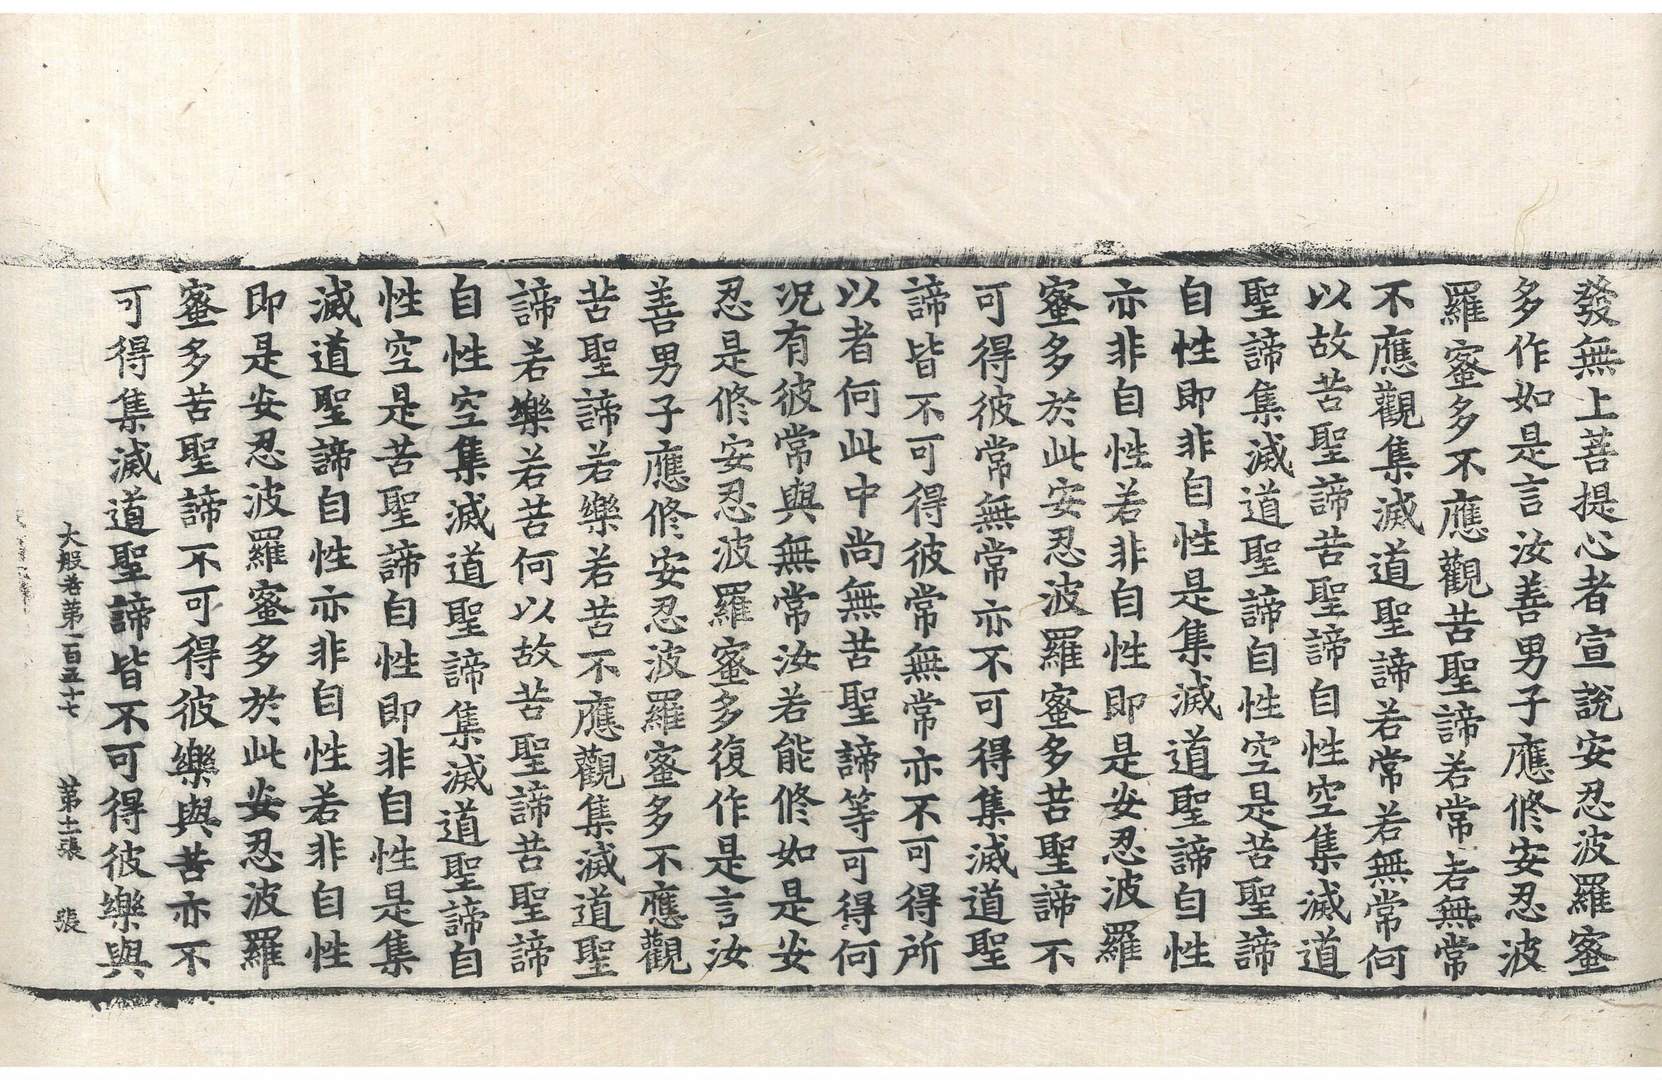 發無上菩提心者宣說安忍波羅蜜
多作如是言汝善男子應修安忍波
羅蜜多不應觀苦聖諦若常若無常
不應觀集滅道聖諦若常若無常何
以故苦聖諦苦聖諦自性空集滅道
聖諦集滅道聖諦自性空是苦聖諦
自性即非自性是集滅道聖諦自性
亦非自性若非自性即是安忍波羅
蜜多於此安忍波羅蜜多苦聖諦不
可得彼常無常亦不可得集滅道聖
諦皆不可得彼常無常亦不可得所
以者何此中尚無苦聖諦等可得何
況有彼常與無常汝若能修如是安
忍是修安忍波羅蜜多復作是言汝
善男子應修安忍波羅蜜多不應觀
苦聖諦若樂若苦不應觀集滅道聖
諦若樂若苦何以故苦聖諦苦聖諦
自性空集滅道聖諦集滅道聖諦自
性空是苦聖諦自性即非自性是集
滅道聖諦自性亦非自性若非自性
即是安忍波羅蜜多於此安忍波羅
蜜多苦聖諦不可得彼樂與苦亦不
可得集滅道聖諦皆不可得彼樂與
大般若第一百五十七 第十二張 張